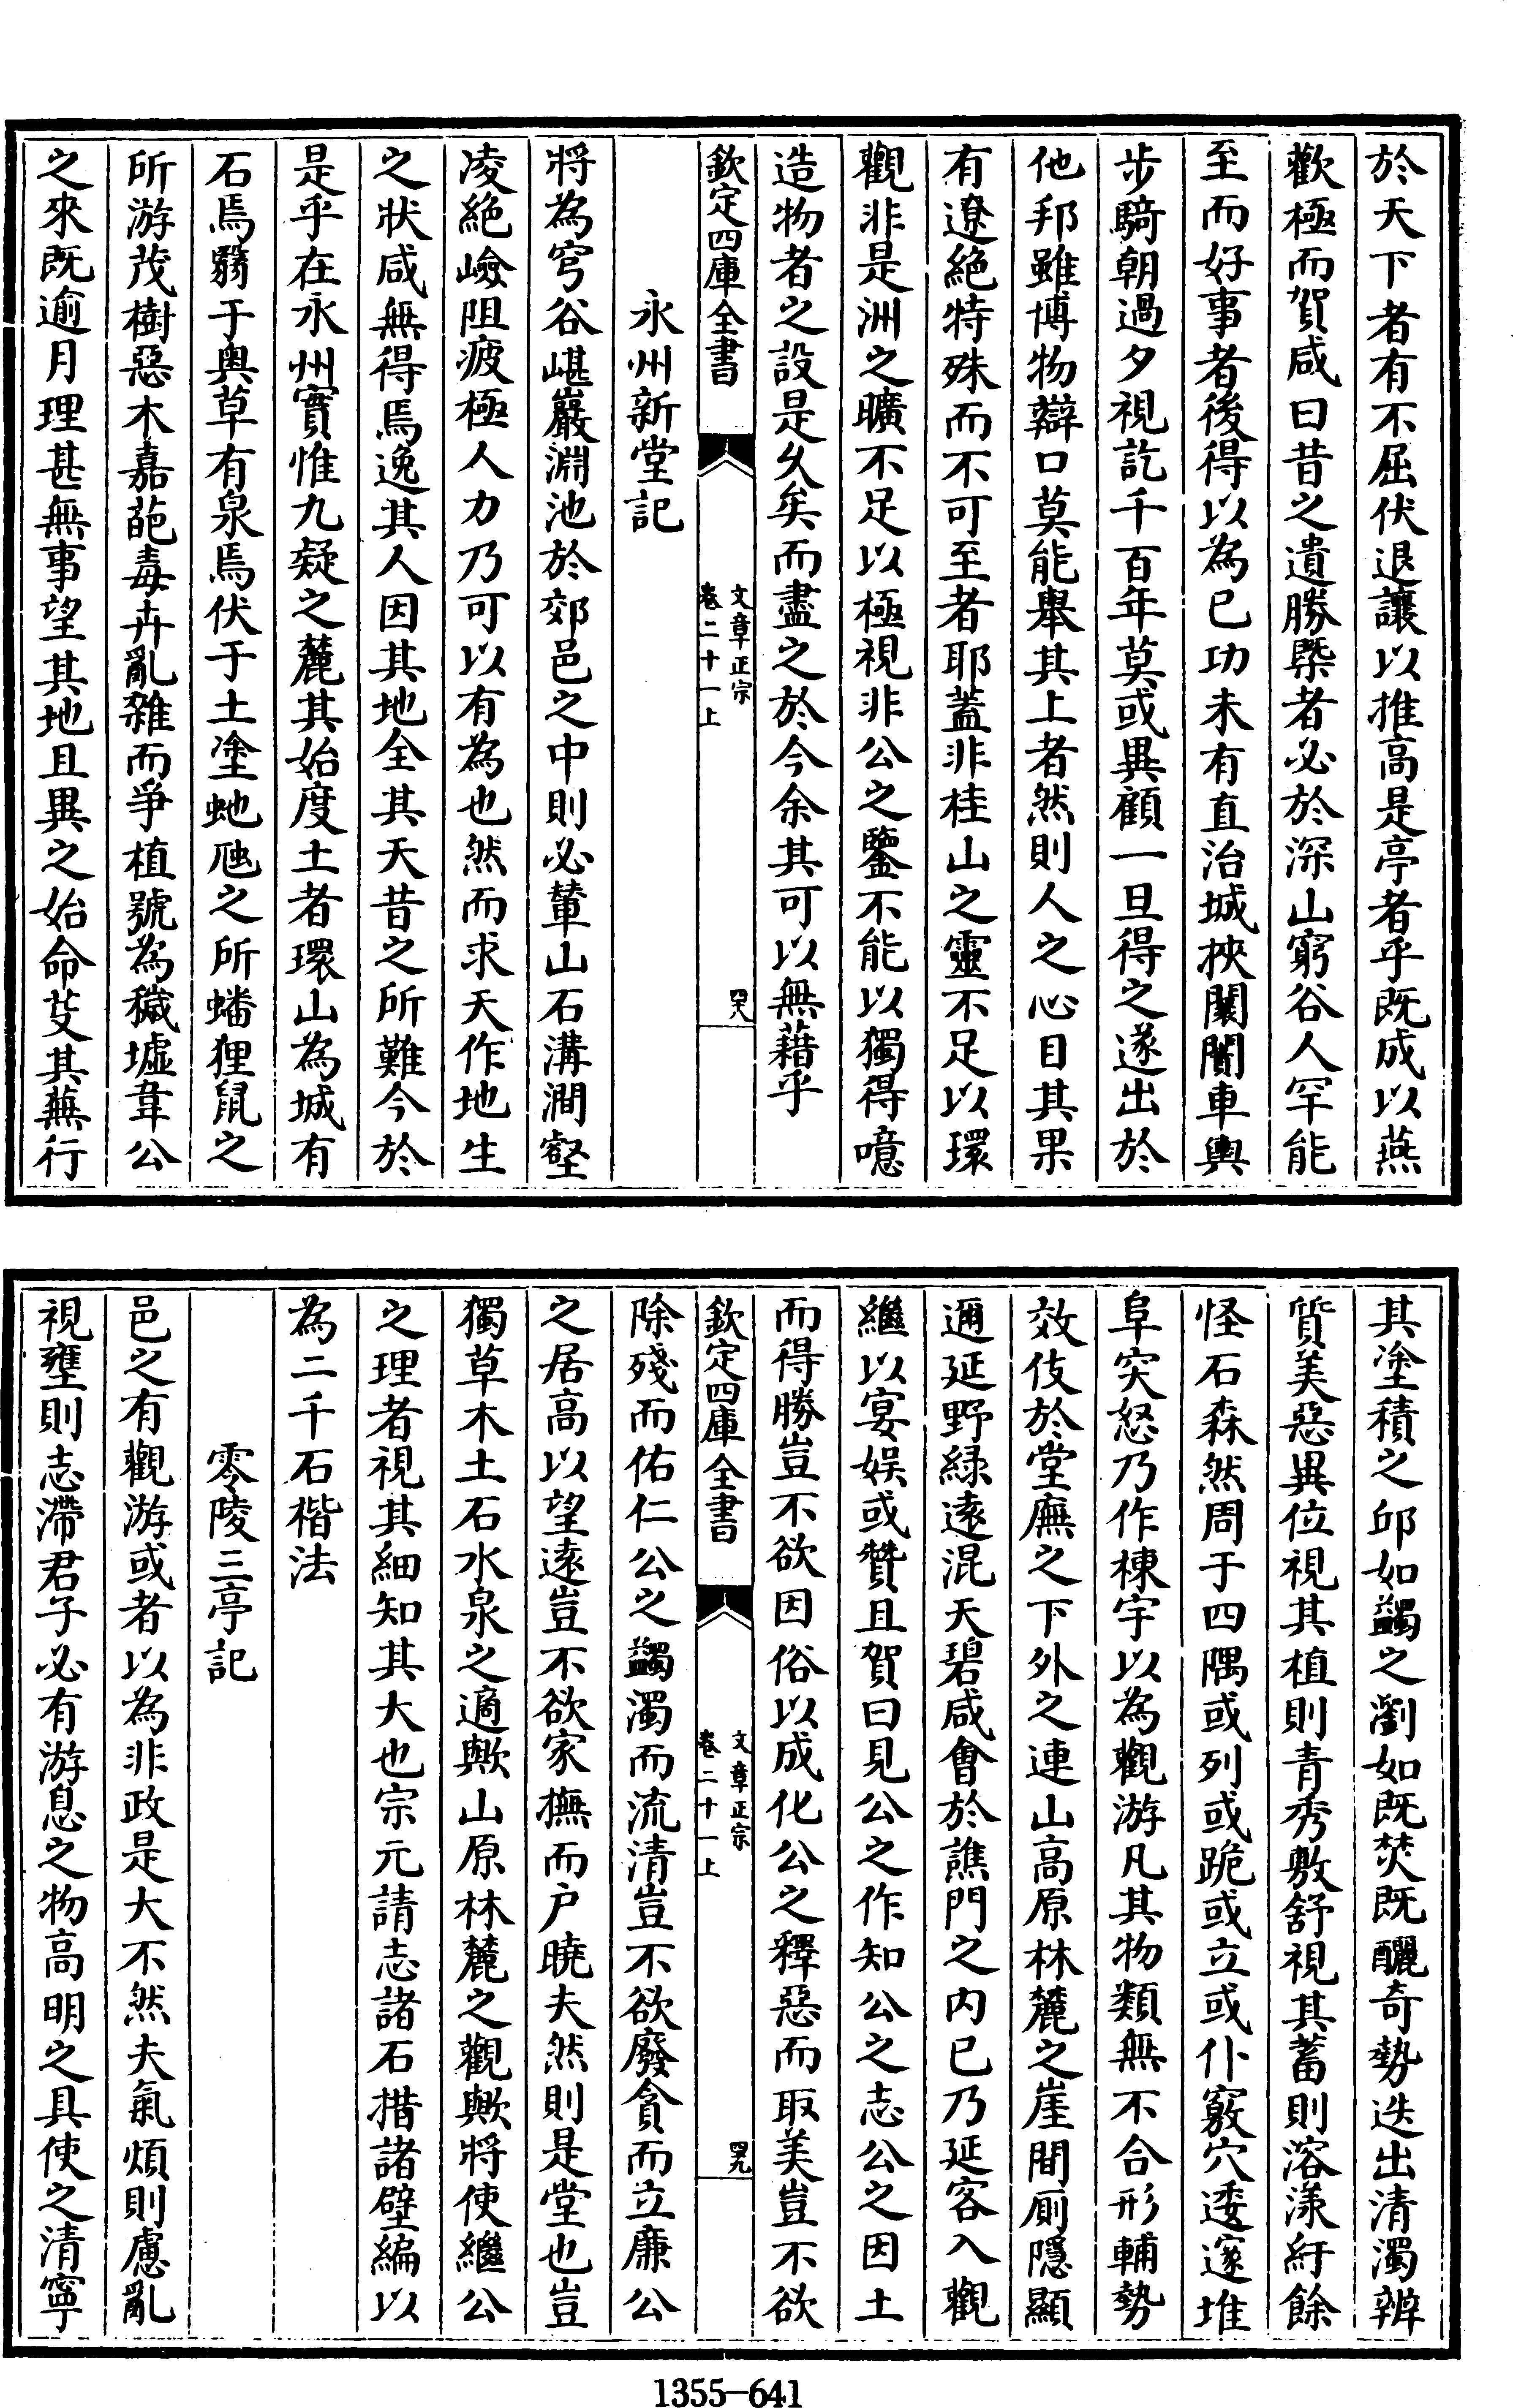 於天下者有不屈伏退讓以推高是亭者乎既成以燕
歡極而賀咸曰昔之遺勝槩者必於深山窮谷人罕能
至而好事者後得以為已功未有直治城挾闤闠車輿
步騎朝過夕視訖千百年莫或異顧一旦得之遂出於
他邦雖博物辯口莫能舉其上者然則人之心目其果
有遼絕特殊而不可至者耶蓋非桂山之靈不足以環
觀非是洲之曠不足以極視非公之鑒不能以獨得噫
造物者之設是久矣而盡之於今余其可以無藉乎
欽定四庫全書
文章正宗
卷二十一上
四八
永州新堂記
將為穹谷嵁巖淵池於郊邑之中則必輦山石溝澗壑
凌絕嶮阻疲極人力乃可以有為也然而求天作地生
之狀咸無得焉逸其人因其地全其天昔之所難今於
是乎在永州實惟九疑之麓其始度土者環山為城有
石焉翳于奧草有泉焉伏于土塗虵虺之所蟠狸鼠之
所游茂樹惡木嘉葩毒卉亂雜而爭植號為穢墟韋公
之來既逾月理甚無事望其地且異之始命芟其蕪行
其塗積之邱如蠲之瀏如既焚既釃奇勢迭出清濁辨
質美惡異位視其植則青秀敷舒視其蓄則溶漾紆餘
怪石森然周于四隅或列或跪或立或仆竅穴逶邃堆
阜突怒乃作棟宇以為觀游凡其物類無不合形輔勢
效伎於堂廡之下外之連山高原林麓之崖間厠隱顯
邇延野綠遠混天碧咸會於譙門之内已乃延客入觀
繼以宴娱或贊且賀曰見公之作知公之志公之因土
而得勝豈不欲因俗以成化公之釋惡而取美豈不欲
欽定四庫全書
文章正宗
卷二十一上
四九
除殘而佑仁公之蠲濁而流清豈不欲廢貪而立廉公
之居高以望遠豈不欲家撫而户曉夫然則是堂也豈
獨草木土石水泉之適歟山原林麓之觀歟將使繼公
之理者視其細知其大也宗元請志諸石措諸壁編以
為二千石楷法
零陵三亭記
邑之有觀游或者以為非政是大不然夫氣煩則慮亂
視壅則志滯君子必有游息之物高明之具使之清寧
1355—641